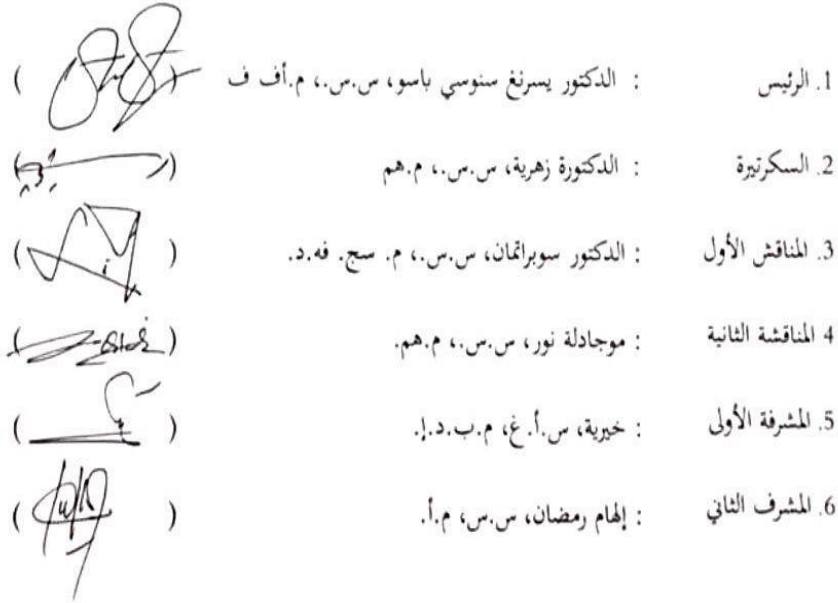 1. الرئيس : الدكتور يسرنغ سنوسي باسو، س.س.، م.أف ف ( )
2. السكرتيرة : الدكتورة زهرية، س.س.، م.هم ( )
3. المناقش الأول : الدكتور سوبراتمان، س.س.، م. سج. فه.د. ( )
4 المناقشة الثانية : موجادلة نور، س.س.، م.هم. ( )
5. المشرفة الأولى : خيرية، س.أ.غ، م.ب.د.إ. ( )
6. المشرف الثاني : إلهام رمضان، س.س، م.أ. ( )